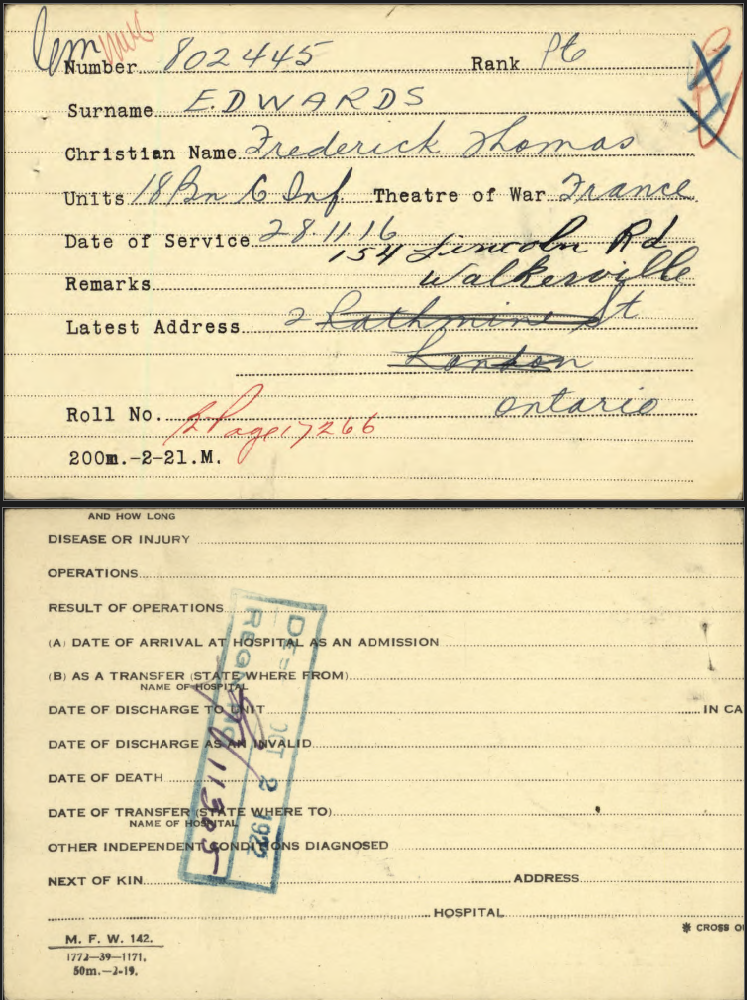 Number 802445 Rank Pte
Surname EDWARDS
Christian Name Frederick Thomas
Units 18 Bn C Inf Theatre of War France
Date of Service 28.11.16
154 Lincoln Rd
Remarks Walkerville
Latest Address 2 Rathmine St
London
Ontario
Roll No. B Page 17266
200m.-2-21.M.
AND HOW LONG
DISEASE OR INJURY
OPERATIONS
RESULT OF OPERATIONS
(A) DATE OF ARRIVAL AT HOSPITAL AS AN ADMISSION
(B) AS A TRANSFER (STATE WHERE FROM)
NAME OF HOSPITAL
DATE OF DISCHARGE TO UNIT IN CA
DATE OF DISCHARGE AS AN INVALID
DATE OF DEATH
DATE OF TRANSFER (STATE WHERE TO)
NAME OF HOSPITAL
OTHER INDEPENDENT CONDITIONS DIAGNOSED
NEXT OF KIN ADDRESS
HOSPITAL
* CROSS O
M. F. W. 142.
1772-39-1171.
50m.-2-19.
DES OCT 2 1922
REGN. NO.
11305